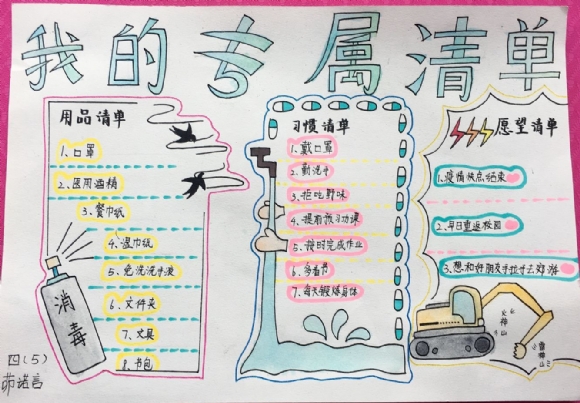 我的专属清单
用品清单
1、口罩
2、医用酒精
3、餐巾纸
4、湿巾纸
5、免洗洗手液
6、文件夹
7、文具
8、书包
消毒
四(5)
诺言
习惯清单
1、戴口罩
2、勤洗手
3、拒吃野味
4、提前预习功课
5、按时完成作业
6、多看书
7、每天锻炼身体
愿望清单
1、疫情快点结束
2、早日重返校园
3、想和好朋友手拉手去郊游
火神山
雷神山